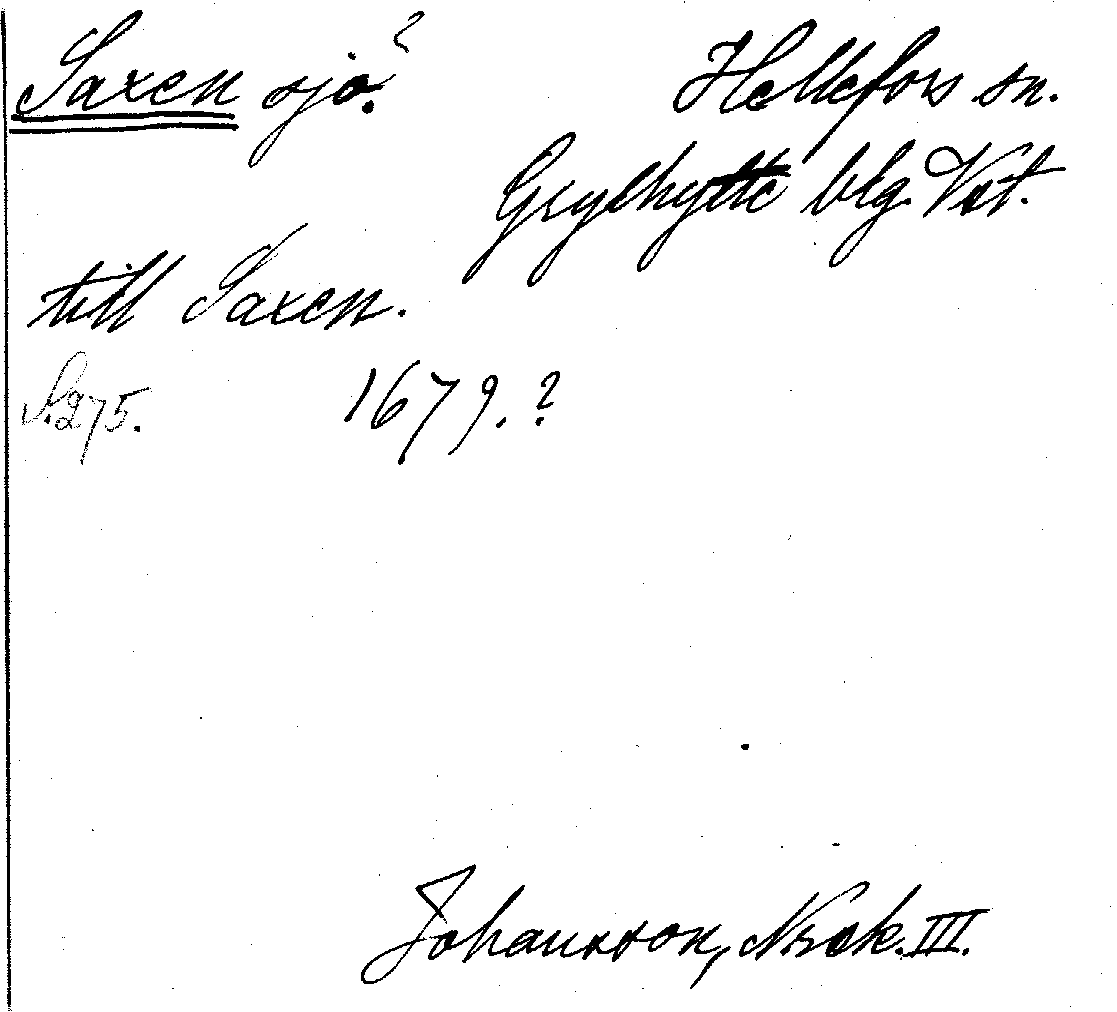 Saxen sjö?
Hellefors sn.
Grythytte blg. Vst.
till Saxen.
S. 275. 1679. ?
Johansson, Norsk. III.